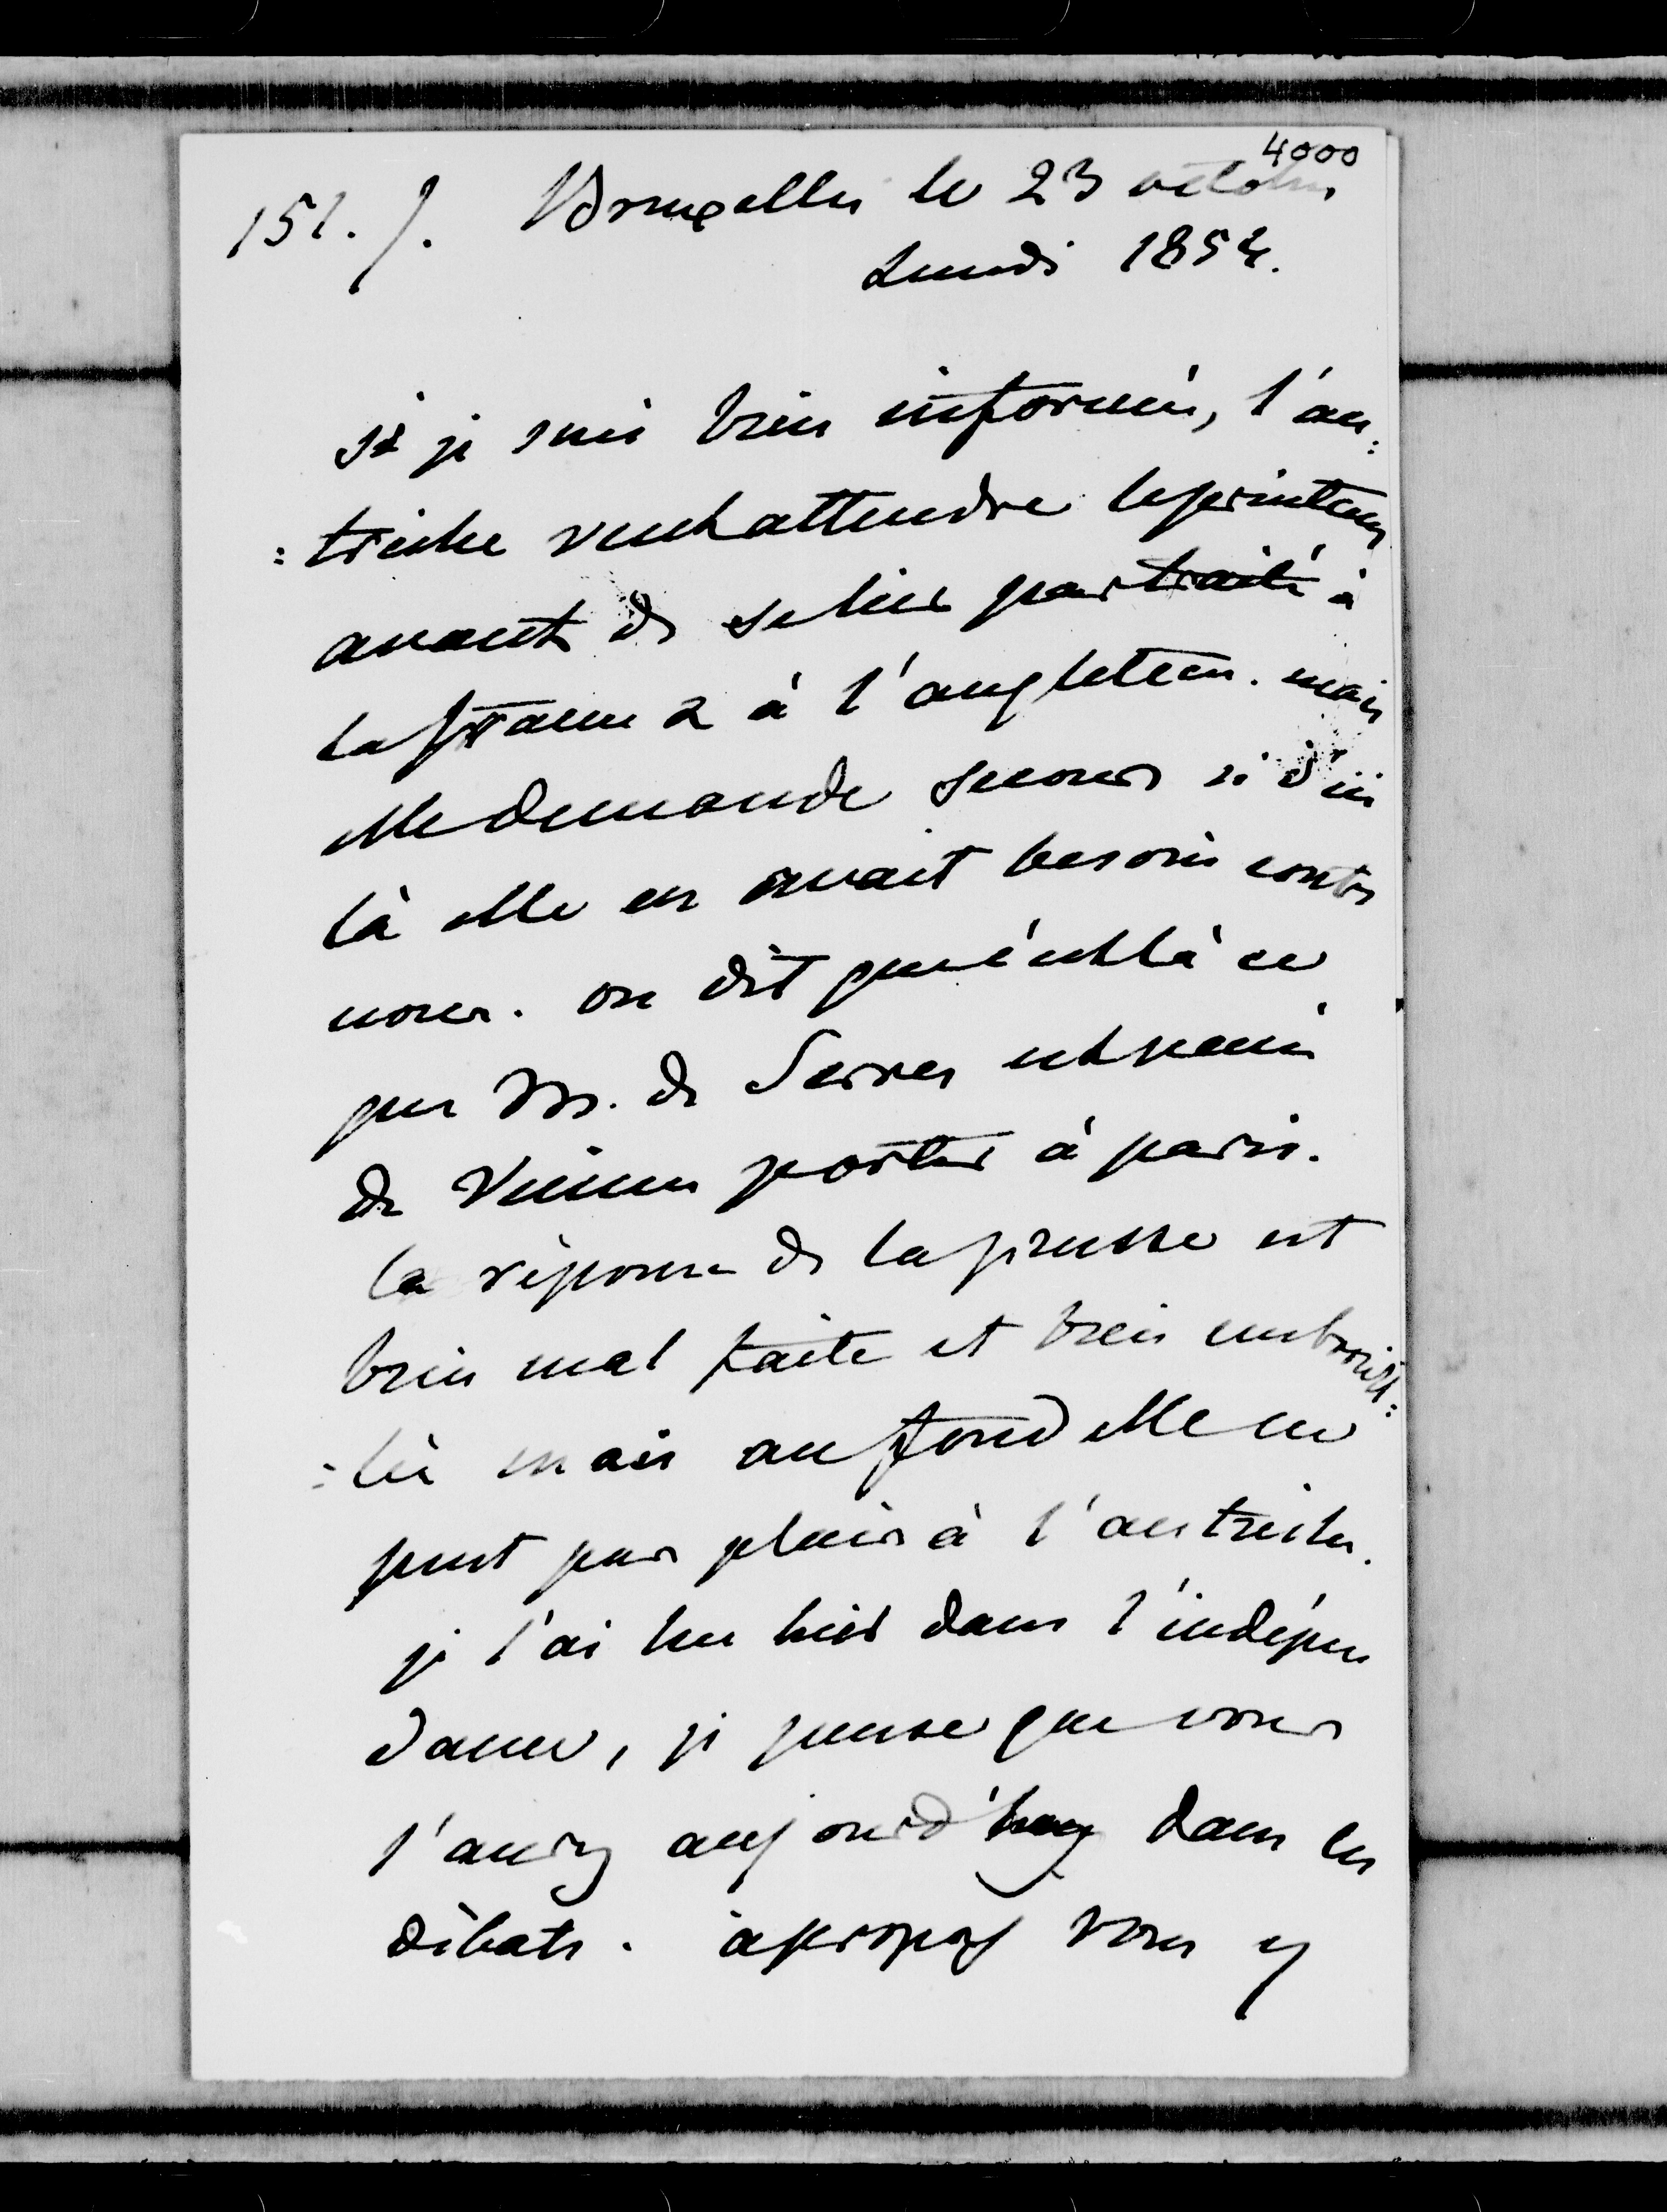 4000
151. /. Bruxelles le 23 octobre
Lundi 1854.
si je suis bien informée, l'au:
:triche veut attendre le printems
avant de se lier par traité à
la france & à l'angleterre. mais
elle demande secours si d'ici
là elle en avait besoin contre
nous. on dit que c'est là ce
que M. de Serres est venu
de Vienne porter à paris.
la réponse de la prusse est
bien mal faite et bien embrouil:
:lée mais au fond elle ne
peut pas plaire à l'autriche.
je l'ai lue hier dans l'indépen
dance, je pense que vous
l'aurez aujourd'huy dans les
débats. à propos vous y